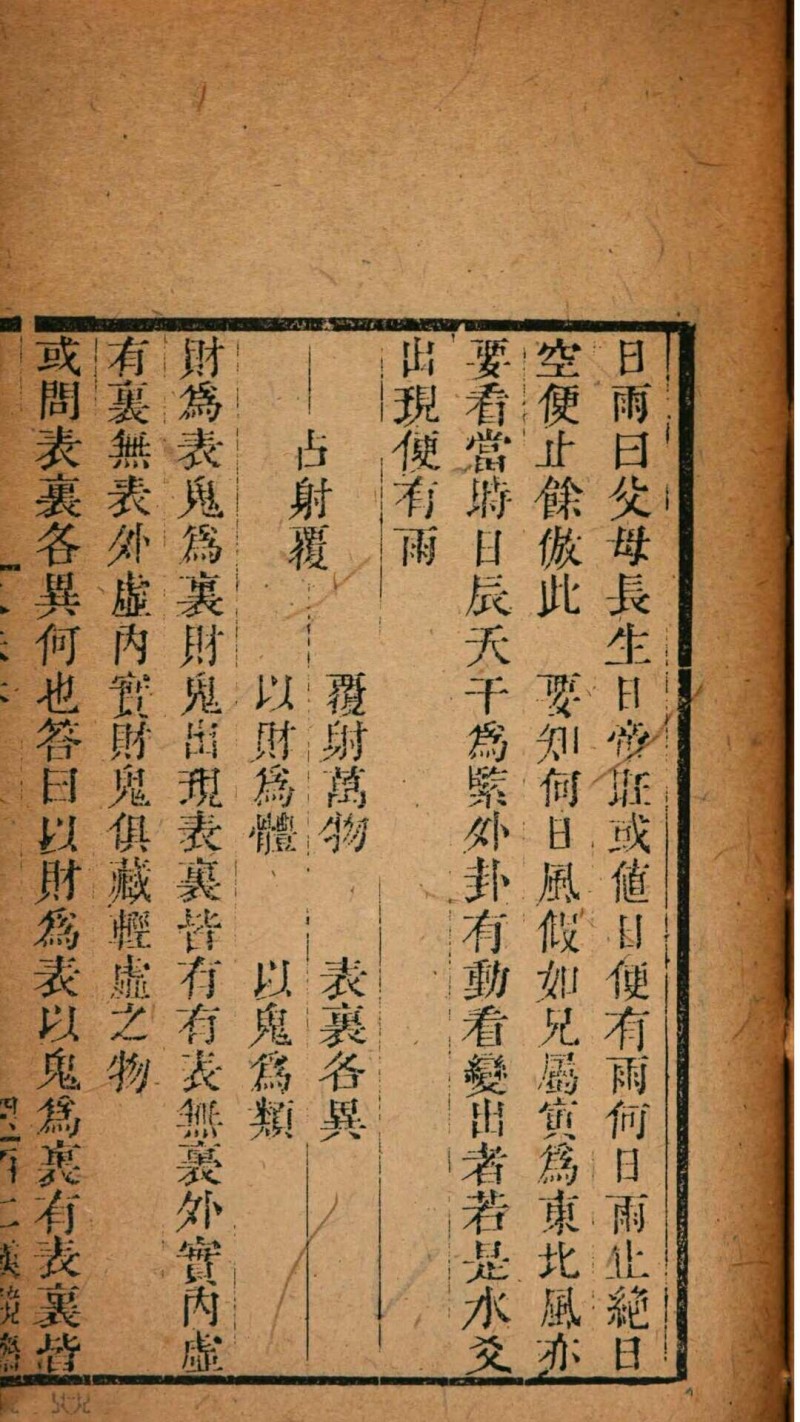 日雨曰父母長生日帝旺或値日便有雨何日雨止絶日
空便止餘倣此　要知何日風假如兄屬寅爲東北風亦
要看當時日辰天干爲緊外卦有動看變出者若是水爻
出現便有雨
占射覆
覆射萬物　表裏各異
以財爲體　以鬼爲類
財爲表鬼爲裏財鬼出現表裏皆有有表無裏外實内虛
有裏無表外虛内實財鬼俱藏輕虛之物
或問表裏各異何也答曰以財爲表以鬼爲裏有表裏皆